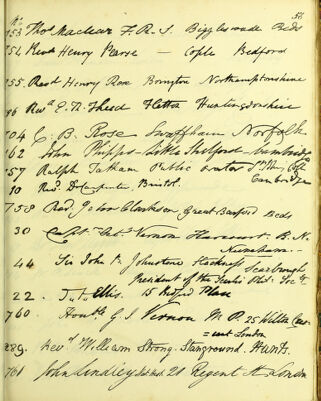 No. 51.
753 Thos Maclear F.R.S. Biggleswade Beds
754 Revd Henry Pearse — Cople Bedford
755. Revd Henry Rose Brington Northamptonshire
Revd Fletton Huntingdonshire
104 C. B. Rose Swaffham Norfolk
162 John Phipps Little Shelford Cambridge
757 Ralph Tatham Public orator St Johns Coll
Cambridge
10 Revd Bristol.
758 Revd John Clarkson Great Barford Beds
30 Capt. Vernon Harcourt R.N.
Nuneham —
44 Sir John V. Johnstone Hackness Scarborough
President of the Phil. Socy
22. J. Ellis. 15 Bedford Place
760. Honble G. J. Vernon M.P. 25 Wilton
London
289. Revd William Strong. Stanground. Hunts.
761 John Lindley 21 Regent St London